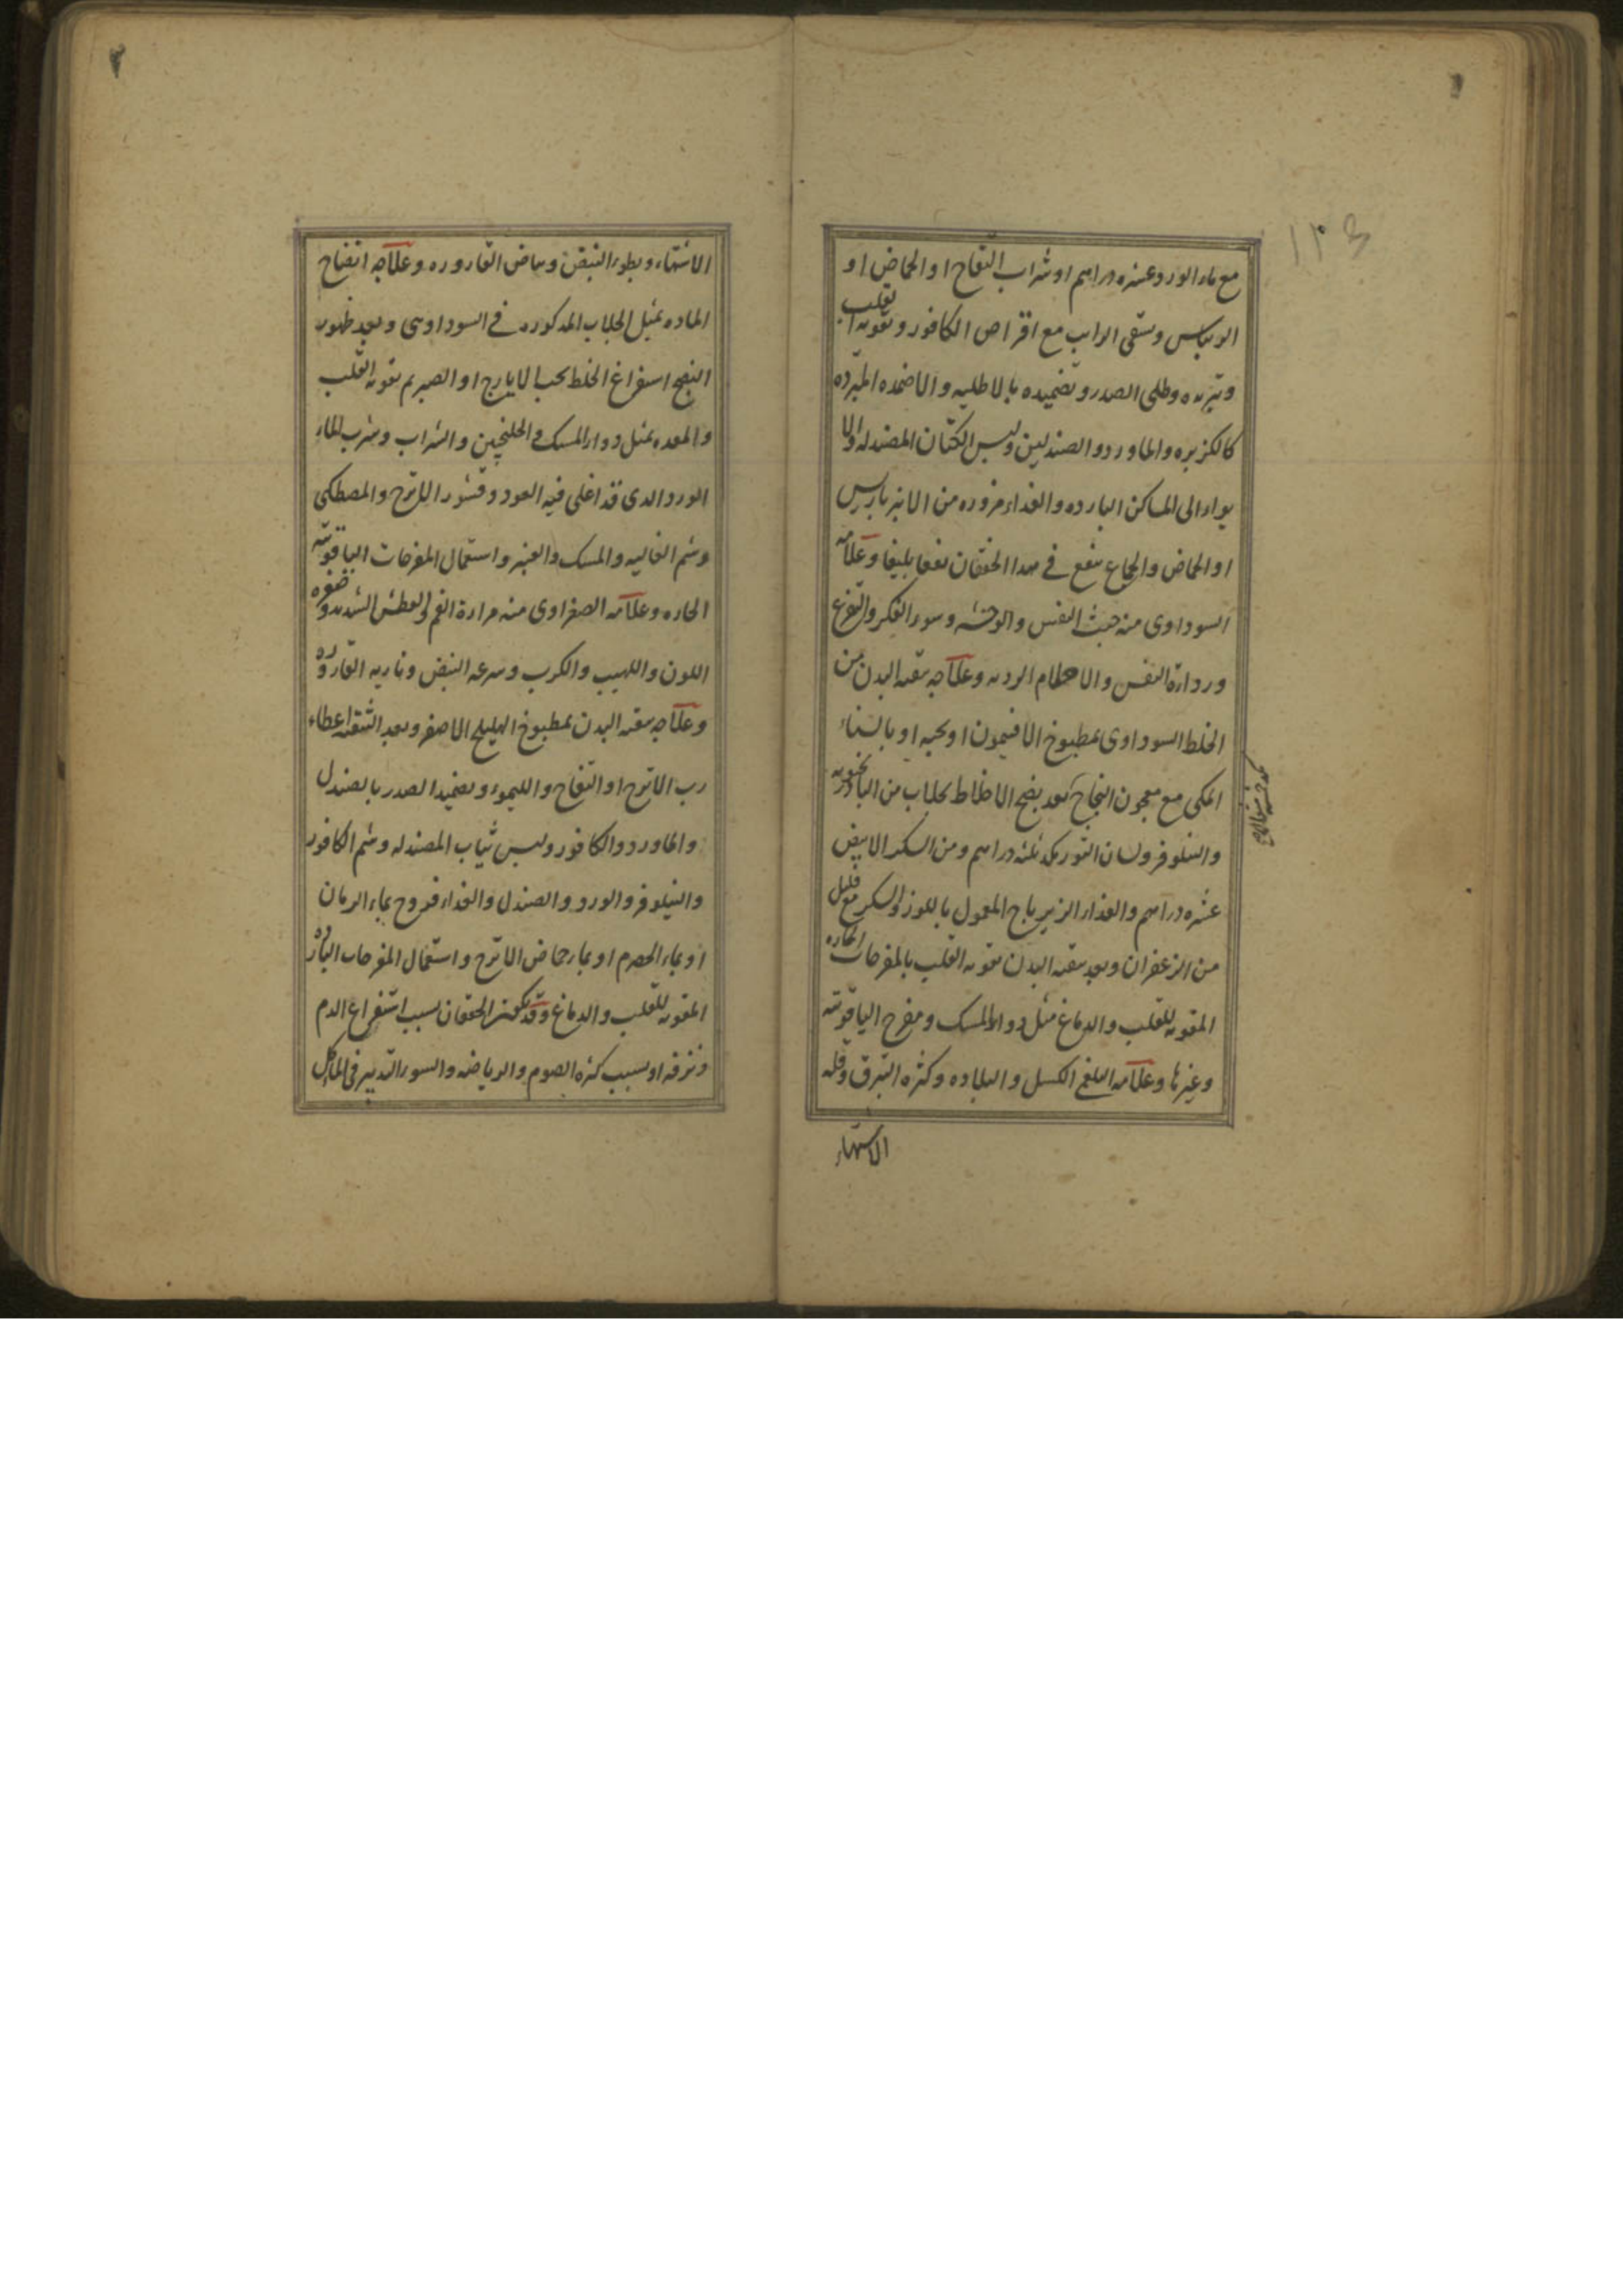 مع ماء الورد عشره دراهم او شراب التفاح او الحماض او
الريباس وسقى الرايب مع اقراص الكافور وتقويه القلب
وتبريده وطلى الصدر وتضميده بالاطليه والاضمده المبرده
كالكزبره والماورد والصندلين ولبس الكتان المصندله والا
يواء الى المساكن البارده والغذاء مزوره من الانبرباريس
او الحماض والجماع ينفع فى هذا الخفقان نفعا بليغا وعلامه
السوداوى منه خبث النفس والوحشه وسوء الفكر والتفزع
ورداءة النفس والاحلام الرديه وعلاجه تنقيه البدن من
الخلط السوداوى بمطبوخ الافتيمون او بحبه او بالسناء
المكى مع معجون النجاح بعد نضج الاخلاط بجلاب من البادرنجبويه
والنيلوفر ولسان الثور من كل ثلثه دراهم ومن السكر الابيض
عشره دراهم والغذاء الزيرباج المعمول باللوز والسكر مع قليل
من الزعفران وبعد تنقيه البدن تقويه القلب بالمفرحات الحاره
المقويه للقلب والدماغ مثل دواء المسك ومفرح الياقوتيه
وغيرها وعلامه البلغمى الكسل والبلاده وكثره التبزق وقله
الاشتهاء
الاشتهاء وبطوء النبض وبياض القاروره وعلاجه انضاج
الماده بمثل الجلاب المذكوره فى السوداوى وبعد ظهور
النضج استفراغ الخلط بحب الايارج او الصبر ثم تقويه القلب
والمعده بمثل دواء المسك والجلنجبين والشراب وشرب الماء
الورد الذى قد اغلى فيه العود وقشور الاترج والمصطكى
وشم الغاليه والمسك والعنبر واستعمال المفرحات الياقوتيه
الحاره وعلامه الصفراوى منه مرارة الفم والعطش الشديد وصفره
اللون واللهيب والكرب وسرعه النبض وناريه القاروره
وعلاجه تنقيه البدن بمطبوخ الهليلج الاصفر وبعد التنقيه اعطاء
رب الاترج او التفاح والليموء وتضميد الصدر بالصندل
والماورد والكافور ولبس ثياب المصندله وشم الكافور
والنيلوفر والورد والصندل والغذاء فروج بماء الرمان
او بماء الحصرم او بماء حماض الاترج واستعمال المفرحات البارده
المقويه للقلب والدماغ وقد يكون الخفقان بسبب استفراغ الدم
ونزفه او بسبب كثره الصوم والرياضه والسوء التدبير فى المآكل